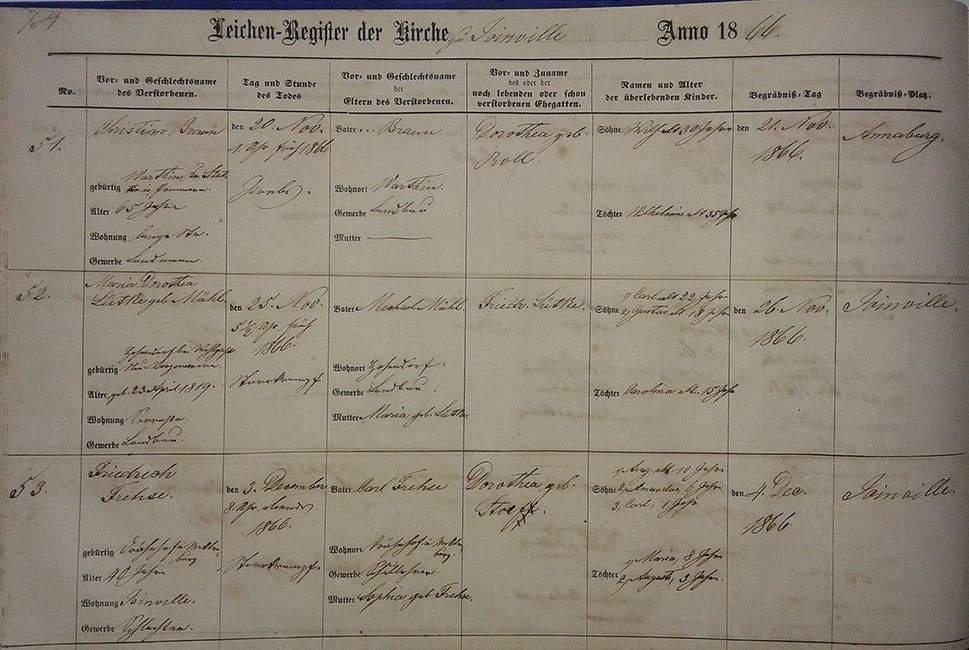 74
Leichen-Register der Kirche zu Joinville Anno 1866.
No.
Vor- und Geschlechtsname
des Verstorbenen.
Tag und Stunde
des Todes
Vor- und Geschlechtsname
der
Eltern des Verstorbenen.
Vor- und Zuname
des oder der
noch lebenden oder schon
verstorbenen Ehegatten.
Namen und Alter
der überlebenden Kinder.
Begräbniß-Tag
Begräbniß-Platz.
51.
Christian Braun
gebürtig
Alter 65 Jahre
Wohnung
Gewerbe Landmann.
den 20. Nov.
1. Uhr früh 1866
Krebs.
Vater Braun
Wohnort Varthin.
Gewerbe Landbau
Mutter
Dorothea geb.
Roll.
Söhne 30 Jahre
Töchter Wilhelmine alt 35 Jahr
den 21. Nov.
1866.
Annaburg.
52.
Maria Dorothea
Lütke geb. Mühl.
gebürtig
Alter geb. 23 April 1819.
Wohnung
Gewerbe Landbau.
den 25. Nov.
5 1/2 Uhr früh
1866.
Starrkrampf.
Vater Michael Mühl.
Wohnort Hohendorf.
Gewerbe Landbau.
Mutter Maria geb. Lütke.
Friedr. Lütke.
Söhne 1, Carl alt 22 Jahr
2, Gustav alt 18 Jahr
Töchter Carolina alt 15 Jahr
den 26. Nov.
1866.
Joinville.
53.
Friedrich
Frehse.
gebürtig
Alter 40 Jahre
Wohnung Joinville.
Gewerbe Schlachter.
den 3. December
8 Uhr abends
1866.
Starrkrampf.
Vater Carl Frehse
Wohnort
Gewerbe Schullehrer
Mutter Sophia geb. Frehse.
Dorothea geb.
Söhne 1, Aug. alt 10 Jahr
2, Amandus, 6 Jahr
3, Carl, 1 Jahr
Töchter 1, Maria, 8 Jahr
2, August, 3 Jahr.
den 4. Dec.
1866
Joinville.